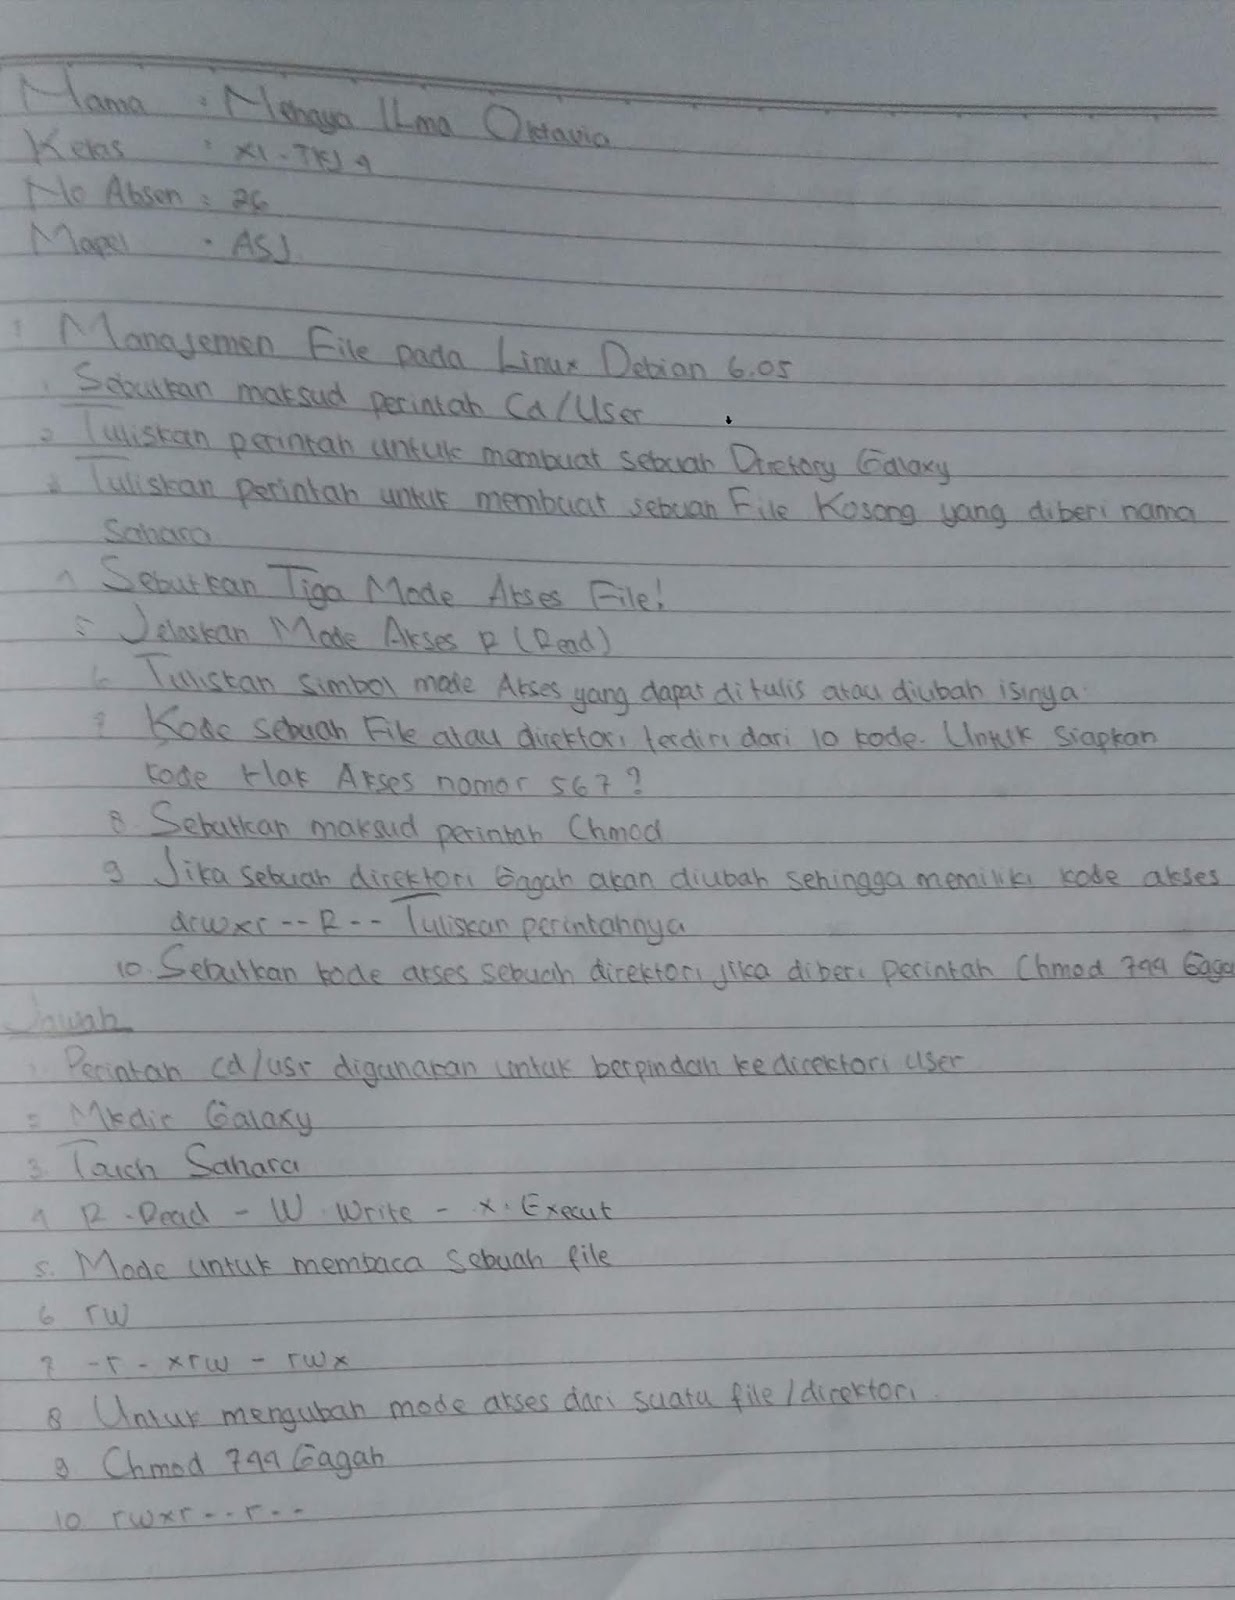 Nama : Menaya Ilma Oktavia
Kelas : XI-TKJ 4
No Absen : 26
Mapel : ASJ
Manajemen File pada Linux Debian 6.05
1. Sebutkan maksud perintah Cd/User
2. Tuliskan perintah untuk membuat sebuah Directory Galaxy
3. Tuliskan perintah untuk membuat sebuah File Kosong yang diberi nama
Sahara
4 Sebutkan Tiga Mode Akses File!
5 Jelaskan Mode Akses R (Read)
6 Tuliskan simbol mode Akses yang dapat di tulis atau diubah isinya.
7 Kode sebuah File atau direktori terdiri dari 10 kode. Untuk Siapkan
kode Hak Akses nomor 567?
8. Sebutkan maksud perintah Chmod
9 Jika sebuah direktori Gagah akan diubah sehingga memiliki kode akses
drwxr--R-- Tuliskan perintahnya
10. Sebutkan kode akses sebuah direktori jika diberi perintah Chmod 744 Gaga
Jawab
1 Perintah cd/usr digunakan untuk berpindah ke direktori user
2 Mkdir Galaxy
3. Touch Sahara
4 R.Read - W.Write - x.Execut
5. Mode untuk membaca sebuah file
6 rw
7 -r-xrw-rwx
8 Untuk mengubah mode akses dari suatu file/direktori.
9 Chmod 744 Gagah
10 rwxr--r--